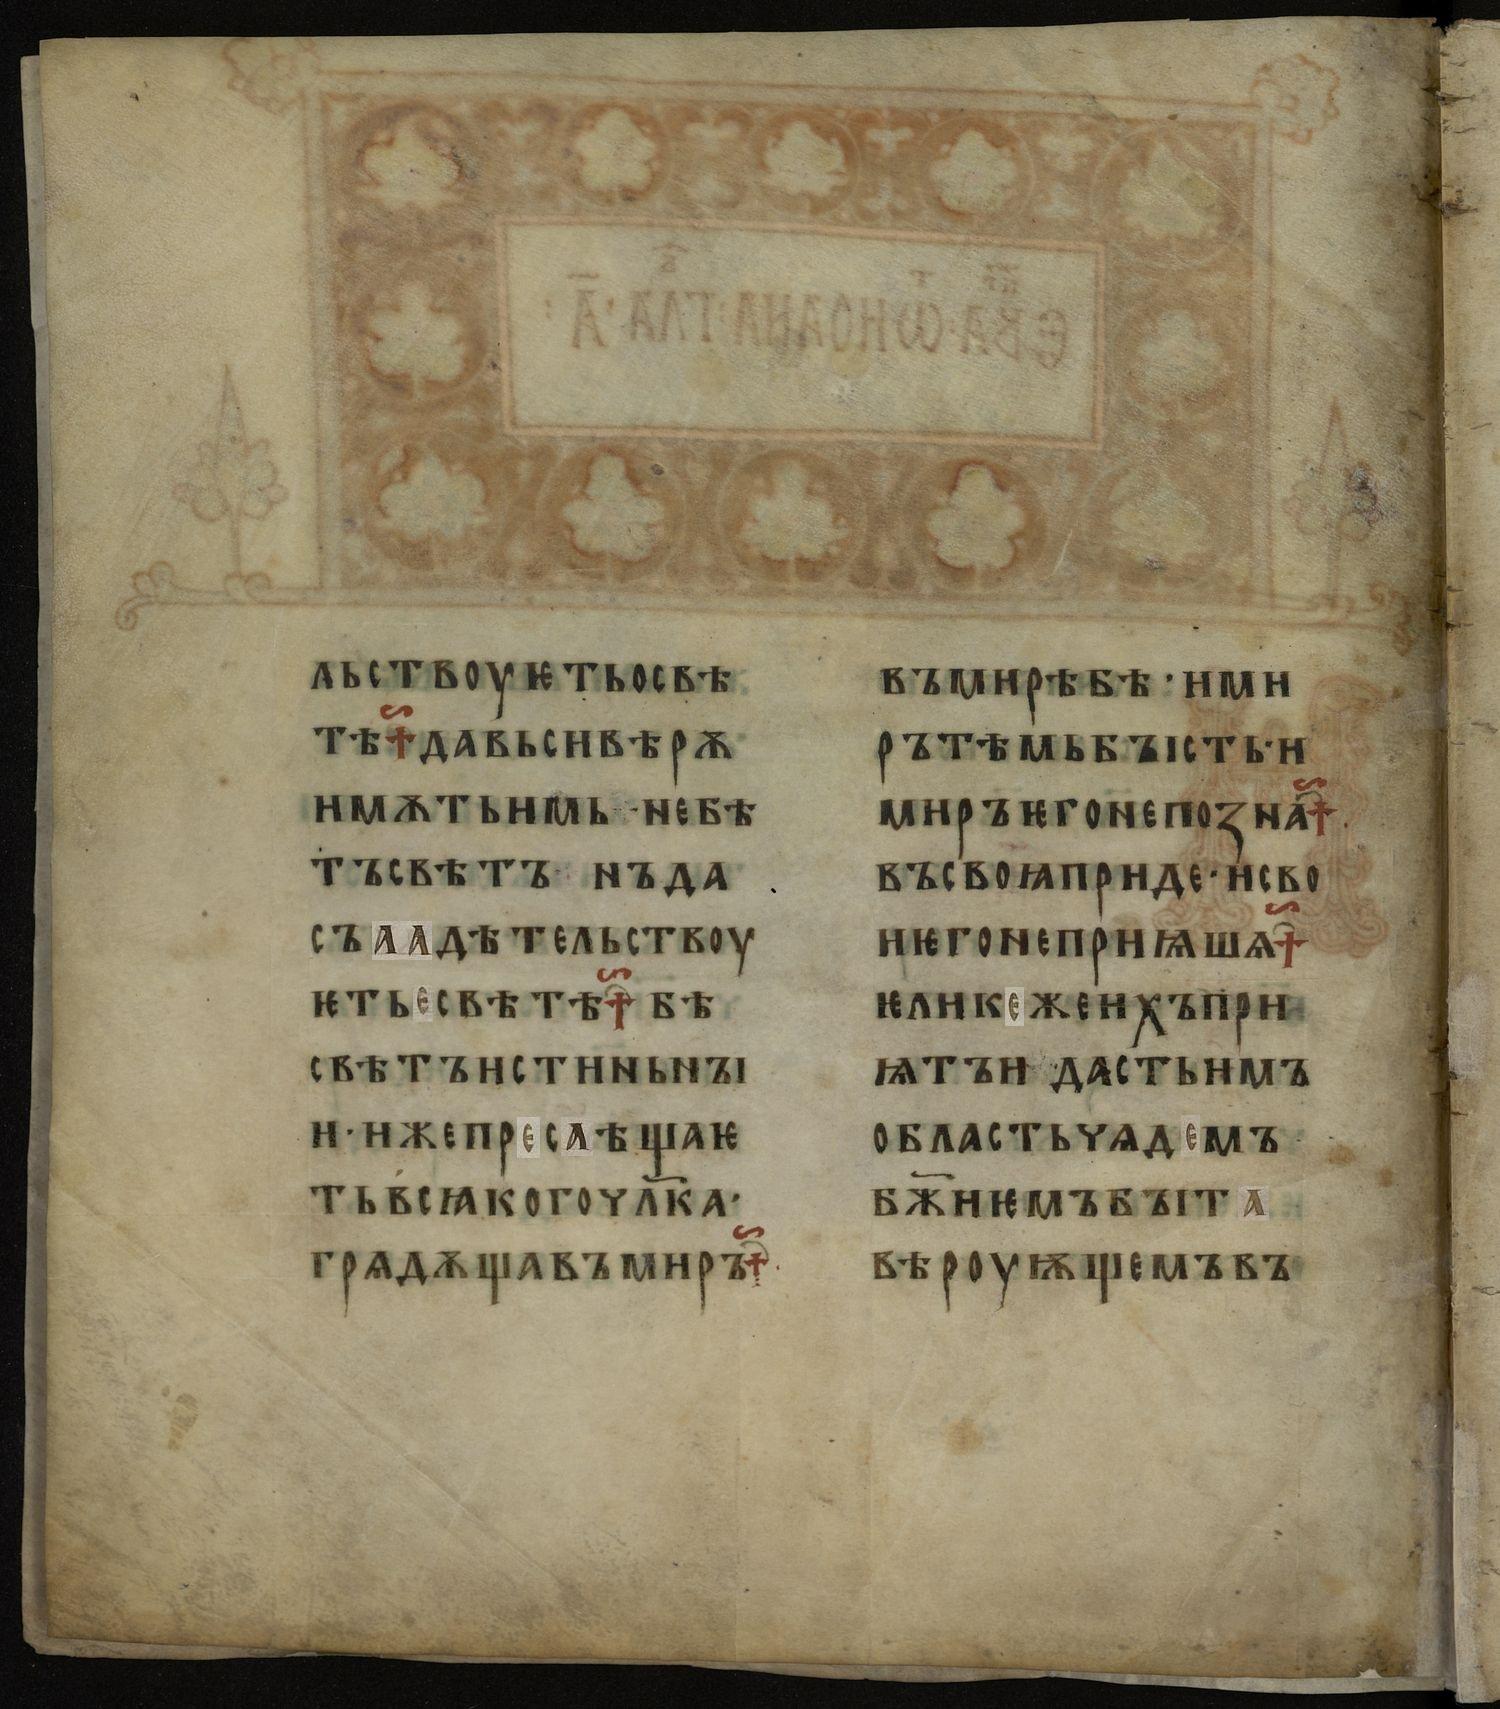 льствоуѥтьосвѣ
тѣ † давьсивѣрѫ
имѫтьимь · небѣ
тъсвѣтъ · нъда
съаадѣтельствоу
ѥтьесвѣтѣ † бѣ
свѣтъистиньнꙑ
и · ижепресаѣщаѥ
тьвсꙗкогочл҃ка ·
грѧдѫщавъмиръ †
въмирѣбѣ · ими
рътѣмьбꙑсть · и
миръѥгонепозна †
въсвоꙗприде · исво
иѥгонеприѩшѧ †
ѥликеженхъпри
ѩтъи дастьимъ
областьчѧдемъ
бж҃иѥмъбꙑта
вѣроуѭщемъвъ